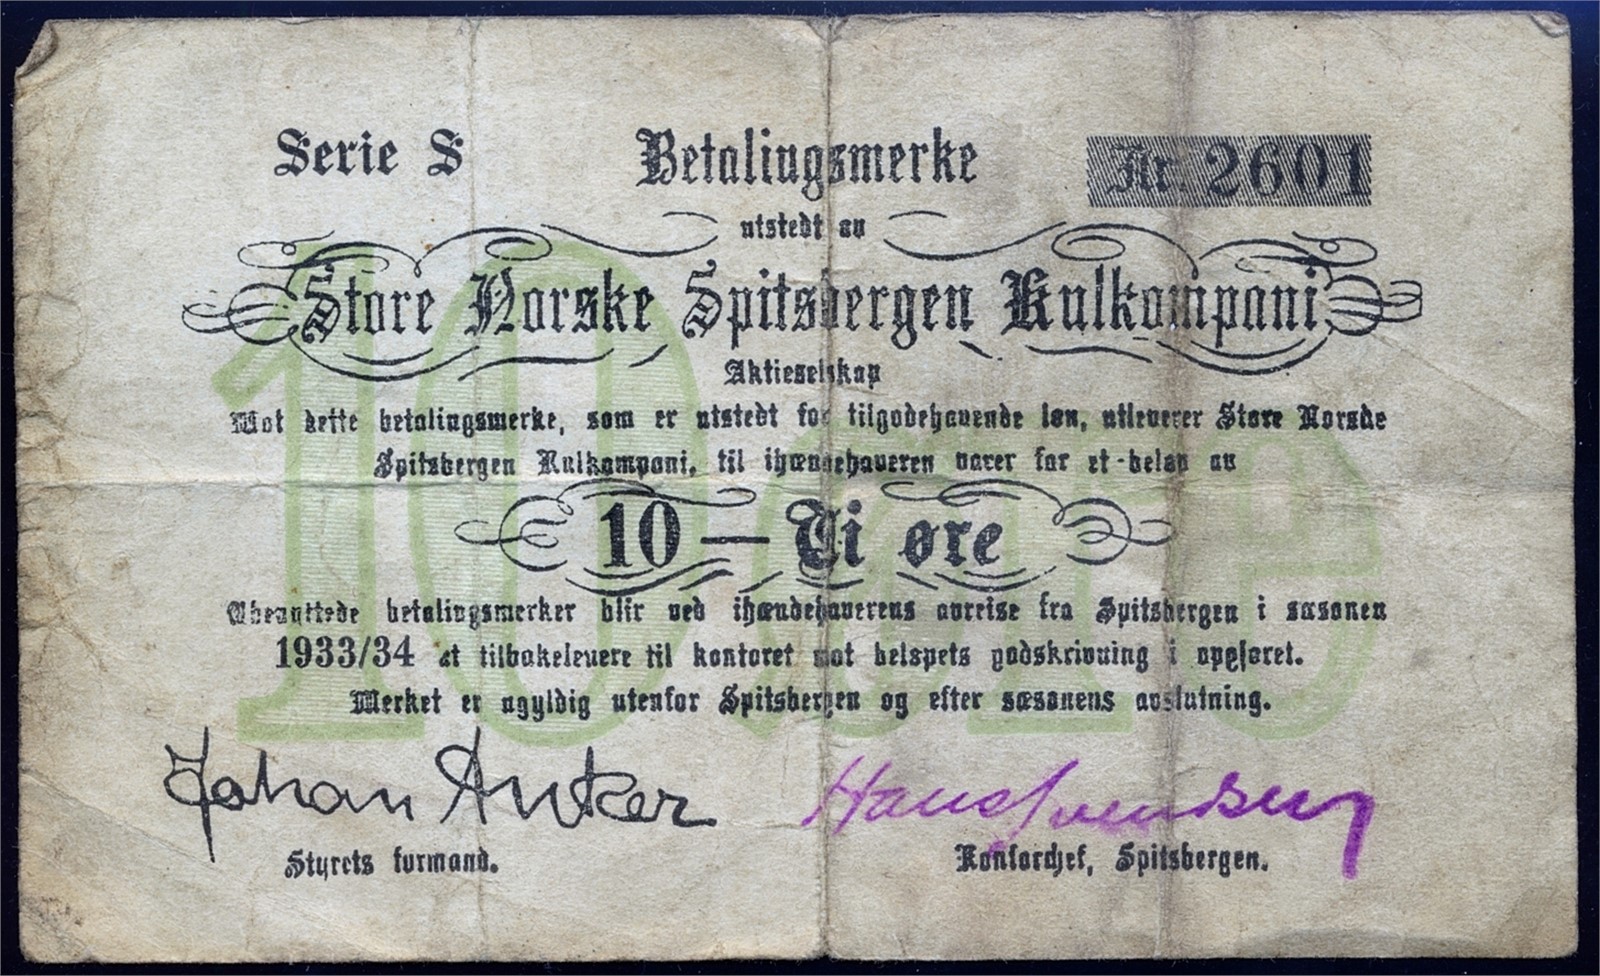 Serie S
Betalingsmerke
Nr. 2601
utstedt av
Store Norske Spitsbergen Kulkompani
Aktieselskap
Mot dette betalingsmerke, som er utstedt for tilgodehavende løn, utleverer Store Norske
Spitsbergen Kulkompani, til ihændehaveren varer for et beløp av
10 — Ti øre
Ubenyttede betalingsmerker blir ved ihændehaverens avreise fra Spitsbergen i sæsonen
1933/34 at tilbakelevere til kontoret mot beløpets godskrivning i opgjøret.
Merket er ugyldig utenfor Spitsbergen og efter sæsonens avslutning.
10 øre
Johan Anker
Hans Svendsen
Styrets formand.
Kontorchef, Spitsbergen.